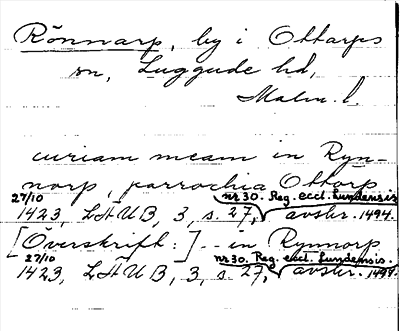 Rönnarp, by i Ottarps
sn, Luggude hd,
Malm. l.
curiam meam in Ryn-
norp, parrochia Ottorp
27/10 nr 30. Reg. eccl. Lundensis
1423, LÄUB, 3, s. 27, avskr. 1494.
[Överskrift:] -- in Rynnorp
27/10 nr 30. Reg. eccl. Lundensis.
1423, LÄUB, 3, s. 27, avskr. 1494.